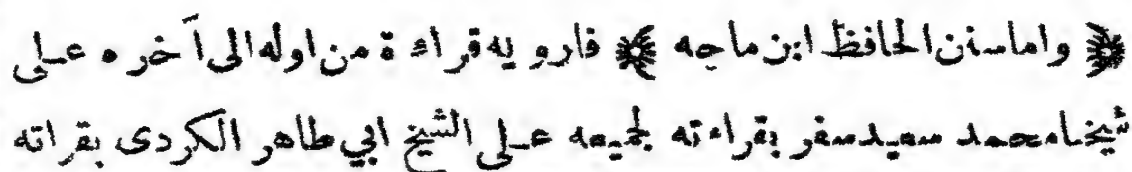 ﴿ واما سنن الحافظ ابن ماجه ﴾ فارويه قراءة من اوله الى آخره على
شيخنا محمد سعيد سفر بقراءته لجميعه على الشيخ ابي طاهر الكردى بقراته